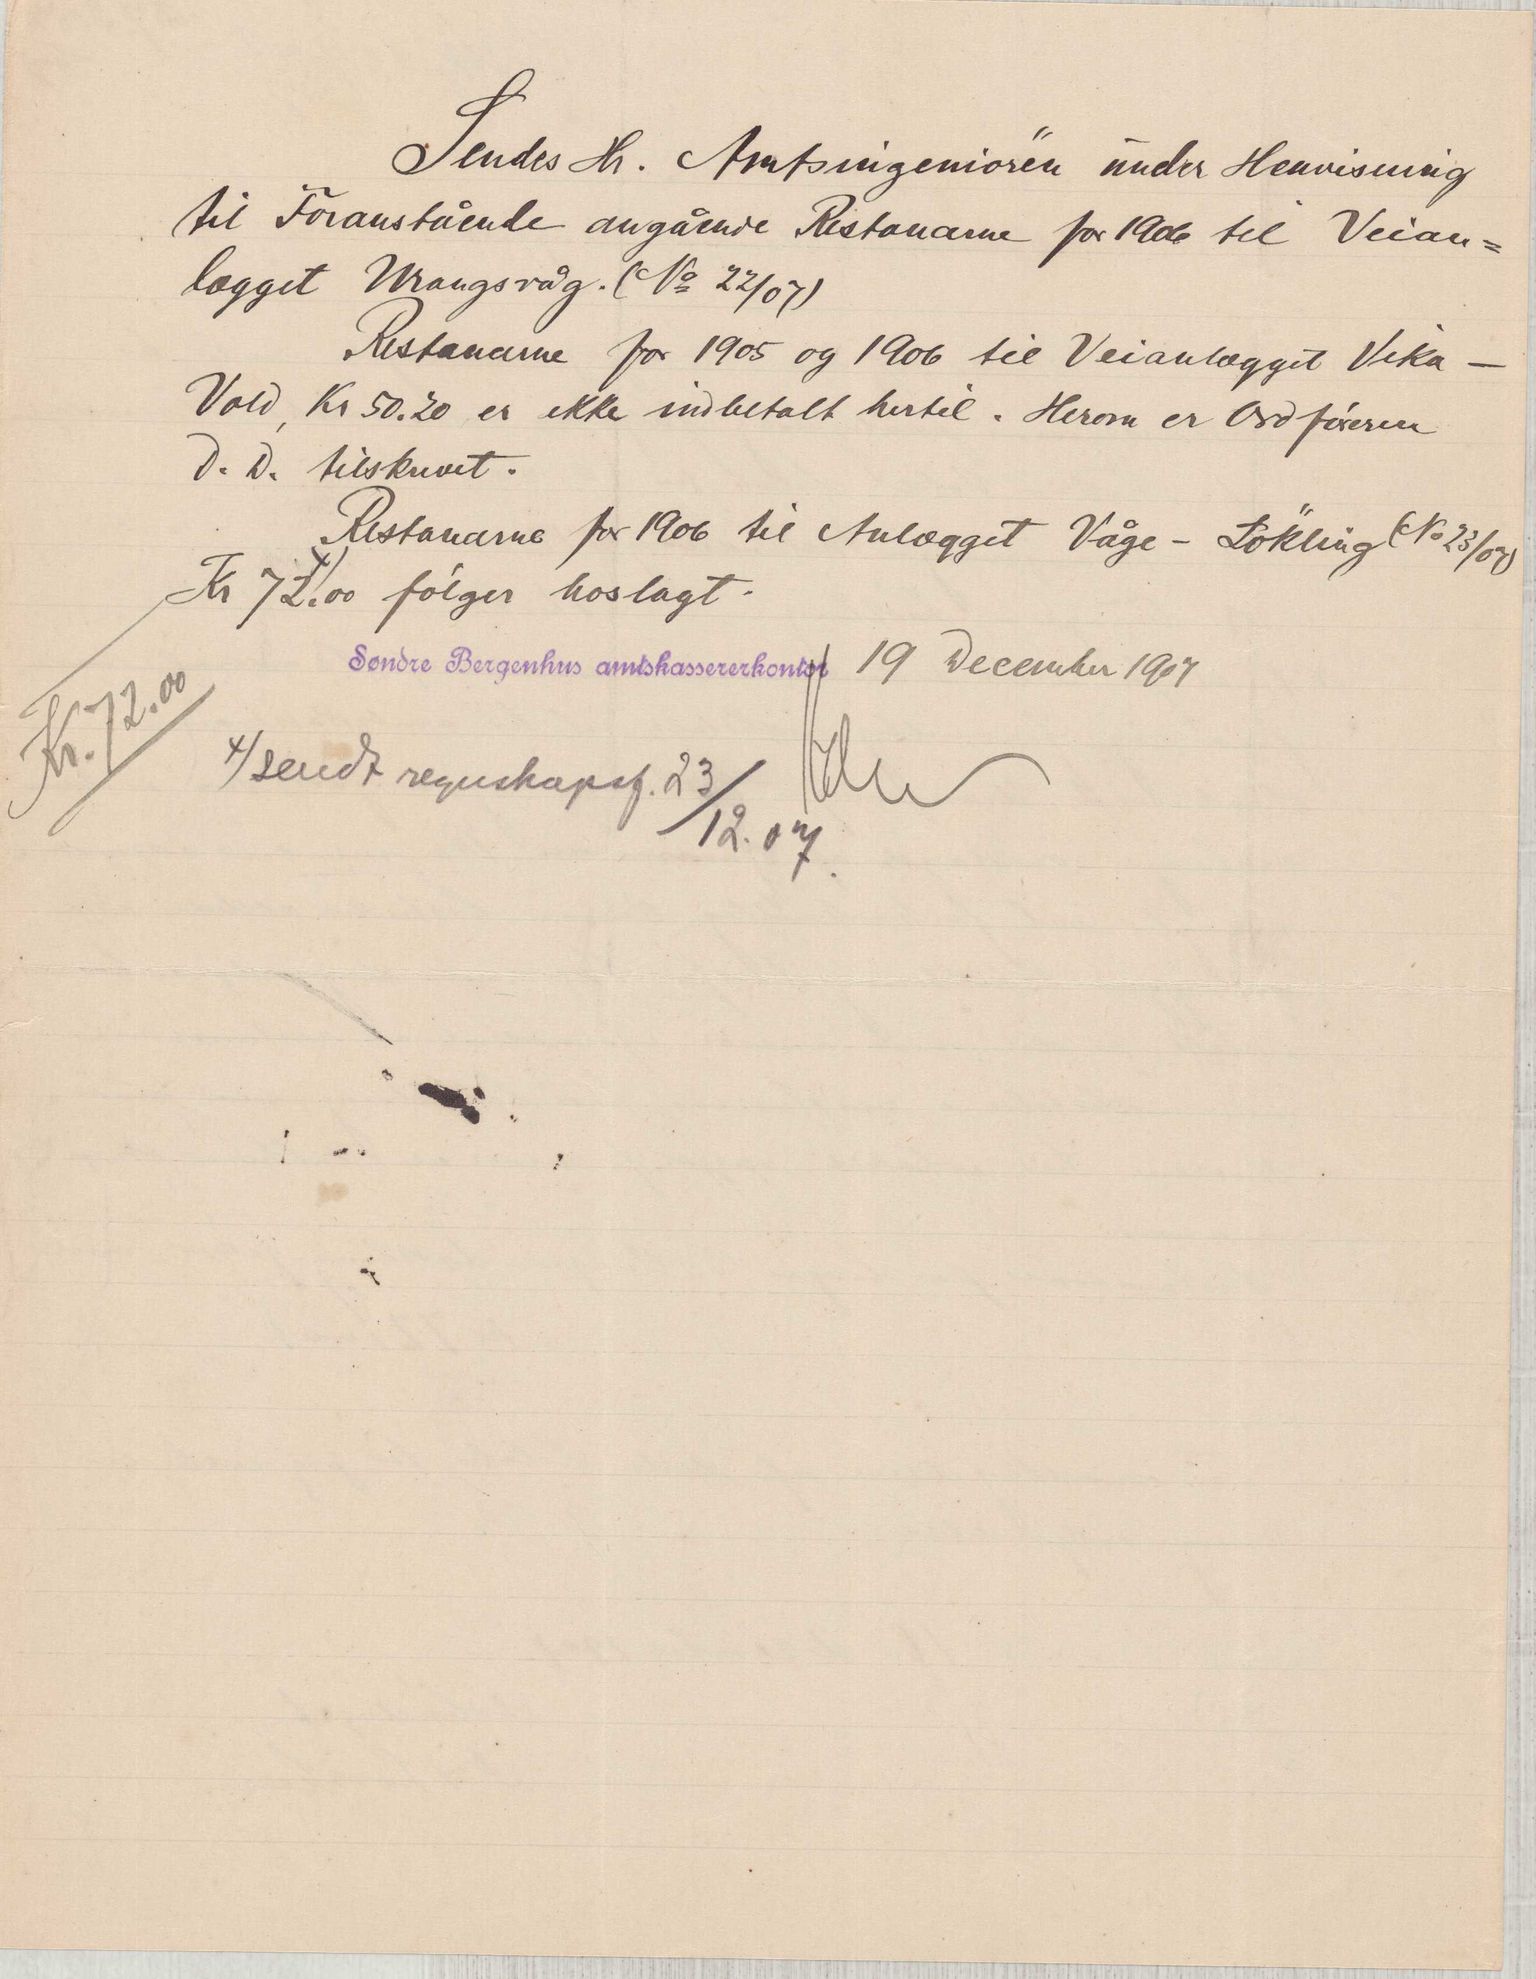 Sendes Hr. Amtsingeniören under Henvisning
til Foranstående angående Restancerne for 1906 til Veian=
lægget Urangsvåg. (No 22/07)
Restancerne for 1905 og 1906 til Veianlægget Vika —
Vold, Kr 50.20 er ikke indbetalt hertil. Herom er Ordföreren
D. D. tilskrevet.
Restancerne for 1906 til Anlægget Våge - Lökling (No 23/07)
Kr 72.00 x/ følger hoslagt.
Søndre Bergenhus amtskassererkontor 19 December 1907
Kr. 72.00
x/ sendt regnskapsf. 23/12.07.